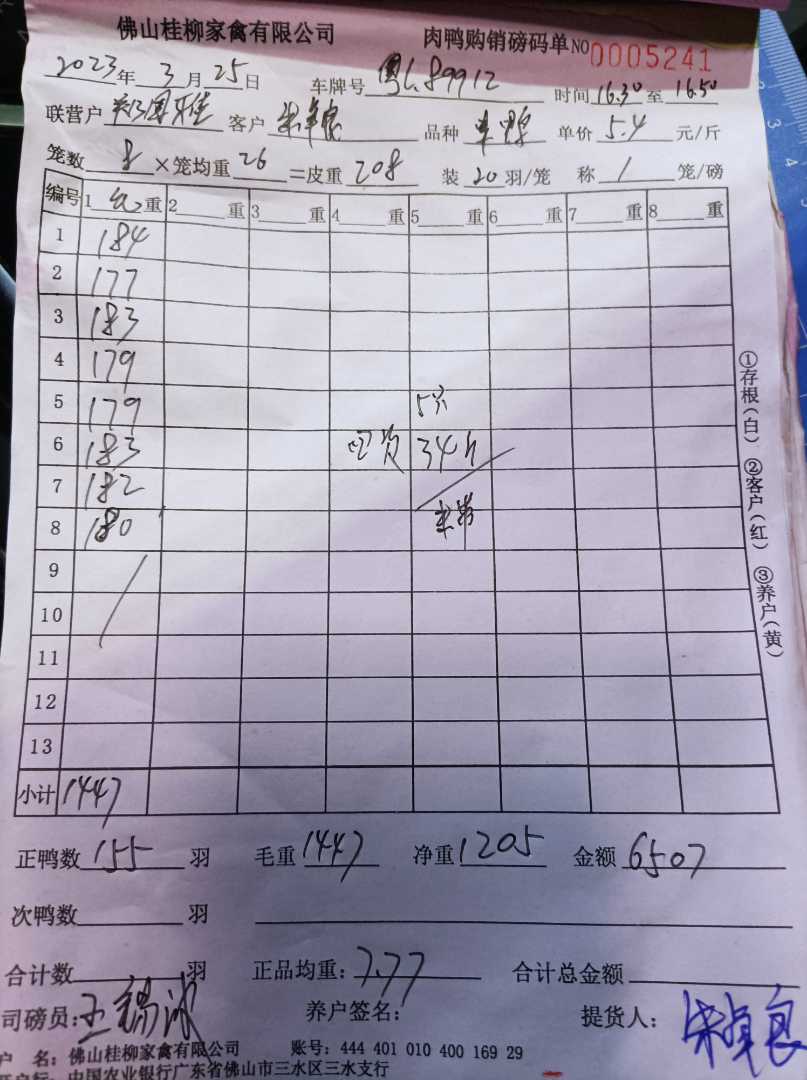 佛山桂柳家禽有限公司 肉鸭购销磅码单 NO 0005241
2023年 3月 25日 车牌号 粤L89912 时间 16.30 至 16.50
联营户 客户 品种 单价 5.4 元/斤
笼数 8 ×笼均重 26 =皮重 208 装 20 羽/笼 称 1 笼/磅
编号 1 重 2 重 3 重 4 重 5 重 6 重 7 重 8 重
1 184
2 177
3 183
4 179
5 179 5只
6 183 34斤
7 182
8 180
9
10
11
12
13
小计 1447
①存根(白) ②客户(红) ③养户(黄)
正鸭数 155 羽 毛重 1447 净重 1205 金额 6507
次鸭数 羽
合计数 羽 正品均重: 7.77 合计总金额
司磅员: 王锡冰 养户签名: 提货人: 朱卓良
户 名: 佛山桂柳家禽有限公司 账号: 444 401 010 400 169 29
开户行: 中国农业银行广东省佛山市三水区三水支行